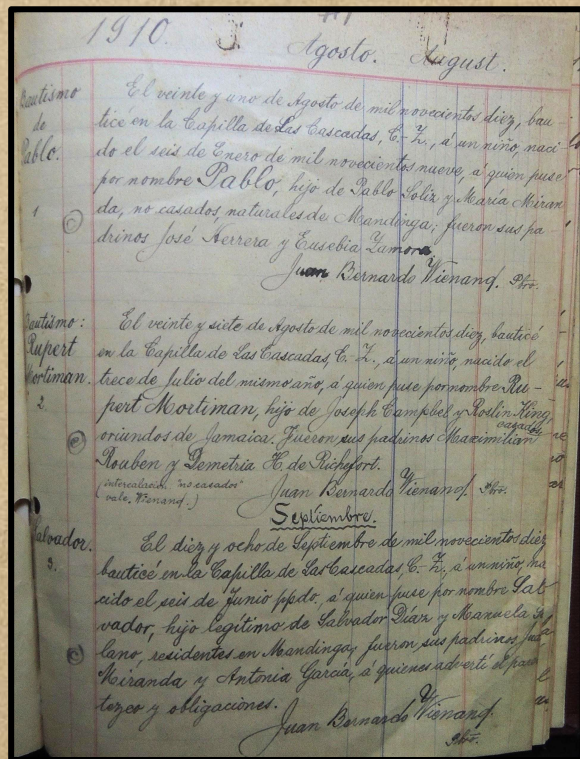 1910.
Agosto. August.
Bautismo
de
Pablo.
1
El veinte y uno de Agosto de mil novecientos diez, bau
ticé en la Capilla de Las Cascadas, C. Z., á un niño, naci
do el seis de Enero de mil novecientos nueve, á quien puse
por nombre Pablo, hijo de Pablo Soliz y María Miran
da, no casados, naturales de Mandinga; fueron sus pa
drinos José Herrera y Eusebia Zamora.
Juan Bernardo Wienand. Pbro.
Bautismo:
Rupert
Mortiman.
2
El veinte y siete de Agosto de mil novecientos diez, bauticé
en la Capilla de Las Cascadas, C. Z., á un niño, nacido el
trece de Julio del mismo año, á quien puse por nombre Ru-
pert Mortiman, hijo de Joseph Campbel y Roslin King,
casados
oriundos de Jamaica. Fueron sus padrinos Maximilian
Rouben y Demetria H. de Richefort.
(intercalación "no casados"
vale. Wienand.)
Juan Bernardo Wienand. Pbro.
Septiembre.
Salvador.
3.
El diez y ocho de Septiembre de mil novecientos diez
bauticé en la Capilla de Las Cascadas, C. Z., á un niño, na
cido el seis de Junio ppdo. á quien puse por nombre Sal
vador, hijo legítimo de Salvador Díaz y Manuela
lano, residentes en Mandinga; fueron sus padrinos,
Miranda y Antonia García, á quienes advertí el paren
tezco y obligaciones.
Juan Bernardo Wienand.
Pbro.